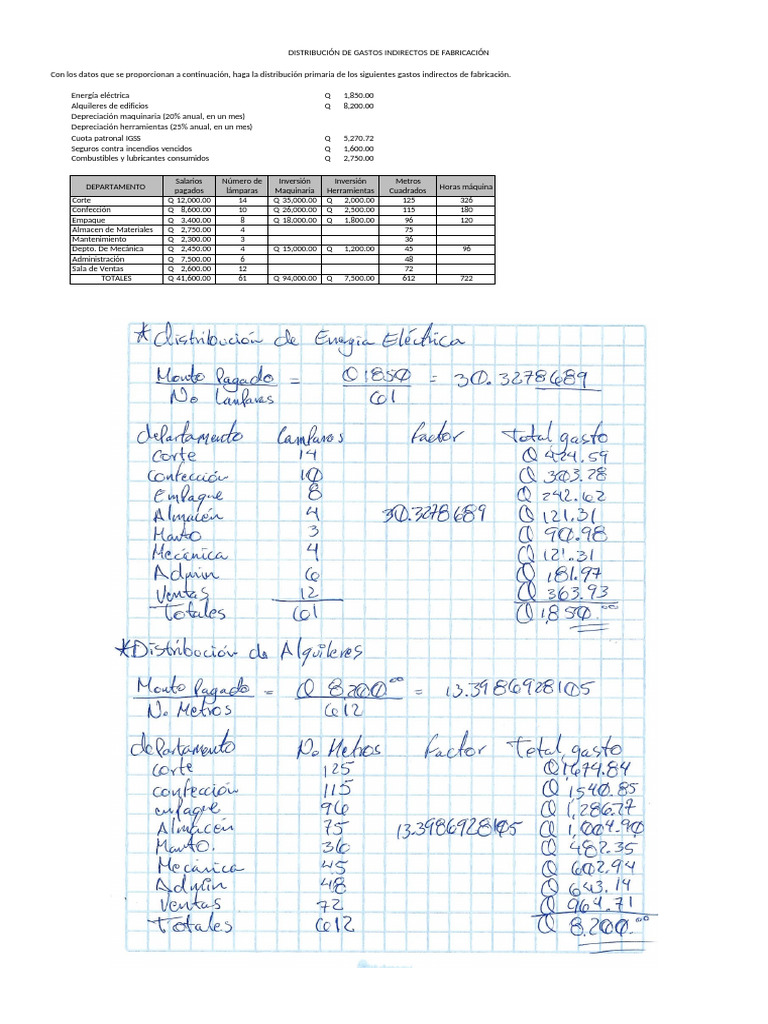 DISTRIBUCIÓN DE GASTOS INDIRECTOS DE FABRICACIÓN
Con los datos que se proporcionan a continuación, haga la distribución primaria de los siguientes gastos indirectos de fabricación.
Energía eléctrica Q 1,850.00
Alquileres de edificios Q 8,200.00
Depreciación maquinaria (20% anual, en un mes)
Depreciación herramientas (25% anual, en un mes)
Cuota patronal IGSS Q 5,270.72
Seguros contra incendios vencidos Q 1,600.00
Combustibles y lubricantes consumidos Q 2,750.00
DEPARTAMENTO Salarios pagados Número de lámparas Inversión Maquinaria Inversión Herramientas Metros Cuadrados Horas máquina
Corte Q 12,000.00 14 Q 35,000.00 Q 2,000.00 125 326
Confección Q 8,600.00 10 Q 26,000.00 Q 2,500.00 115 180
Empaque Q 3,400.00 8 Q 18,000.00 Q 1,800.00 96 120
Almacen de Materiales Q 2,750.00 4 75
Mantenimiento Q 2,300.00 3 36
Depto. De Mecánica Q 2,450.00 4 Q 15,000.00 Q 1,200.00 45 96
Administración Q 7,500.00 6 48
Sala de Ventas Q 2,600.00 12 72
TOTALES Q 41,600.00 61 Q 94,000.00 Q 7,500.00 612 722
* Distribución de Energía Eléctrica
Monto Pagado = Q 1850 = 30.3278689
No Lamparas 61
departamento Lamparas Factor Total gasto
Corte 14 Q 424.59
Confección 10 Q 303.28
Empaque 8 Q 242.62
Almacén 4 30.3278689 Q 121.31
Manto 3 Q 90.98
Mecánica 4 Q 121.31
Admin 6 Q 181.97
Ventas 12 Q 363.93
Totales 61 Q 1,850.00
* Distribución de Alquileres
Monto Pagado = Q 8,200.00 = 13.3986928105
No. Metros 612
departamento No Metros Factor Total gasto
Corte 125 Q 1674.84
confección 115 Q 1540.85
empaque 96 Q 1,286.27
Almacén 75 13.3986928105 Q 1,004.90
Manto. 36 Q 482.35
Mecánica 45 Q 602.94
Admin 48 Q 643.14
Ventas 72 Q 964.71
Totales 612 Q 8.200.00